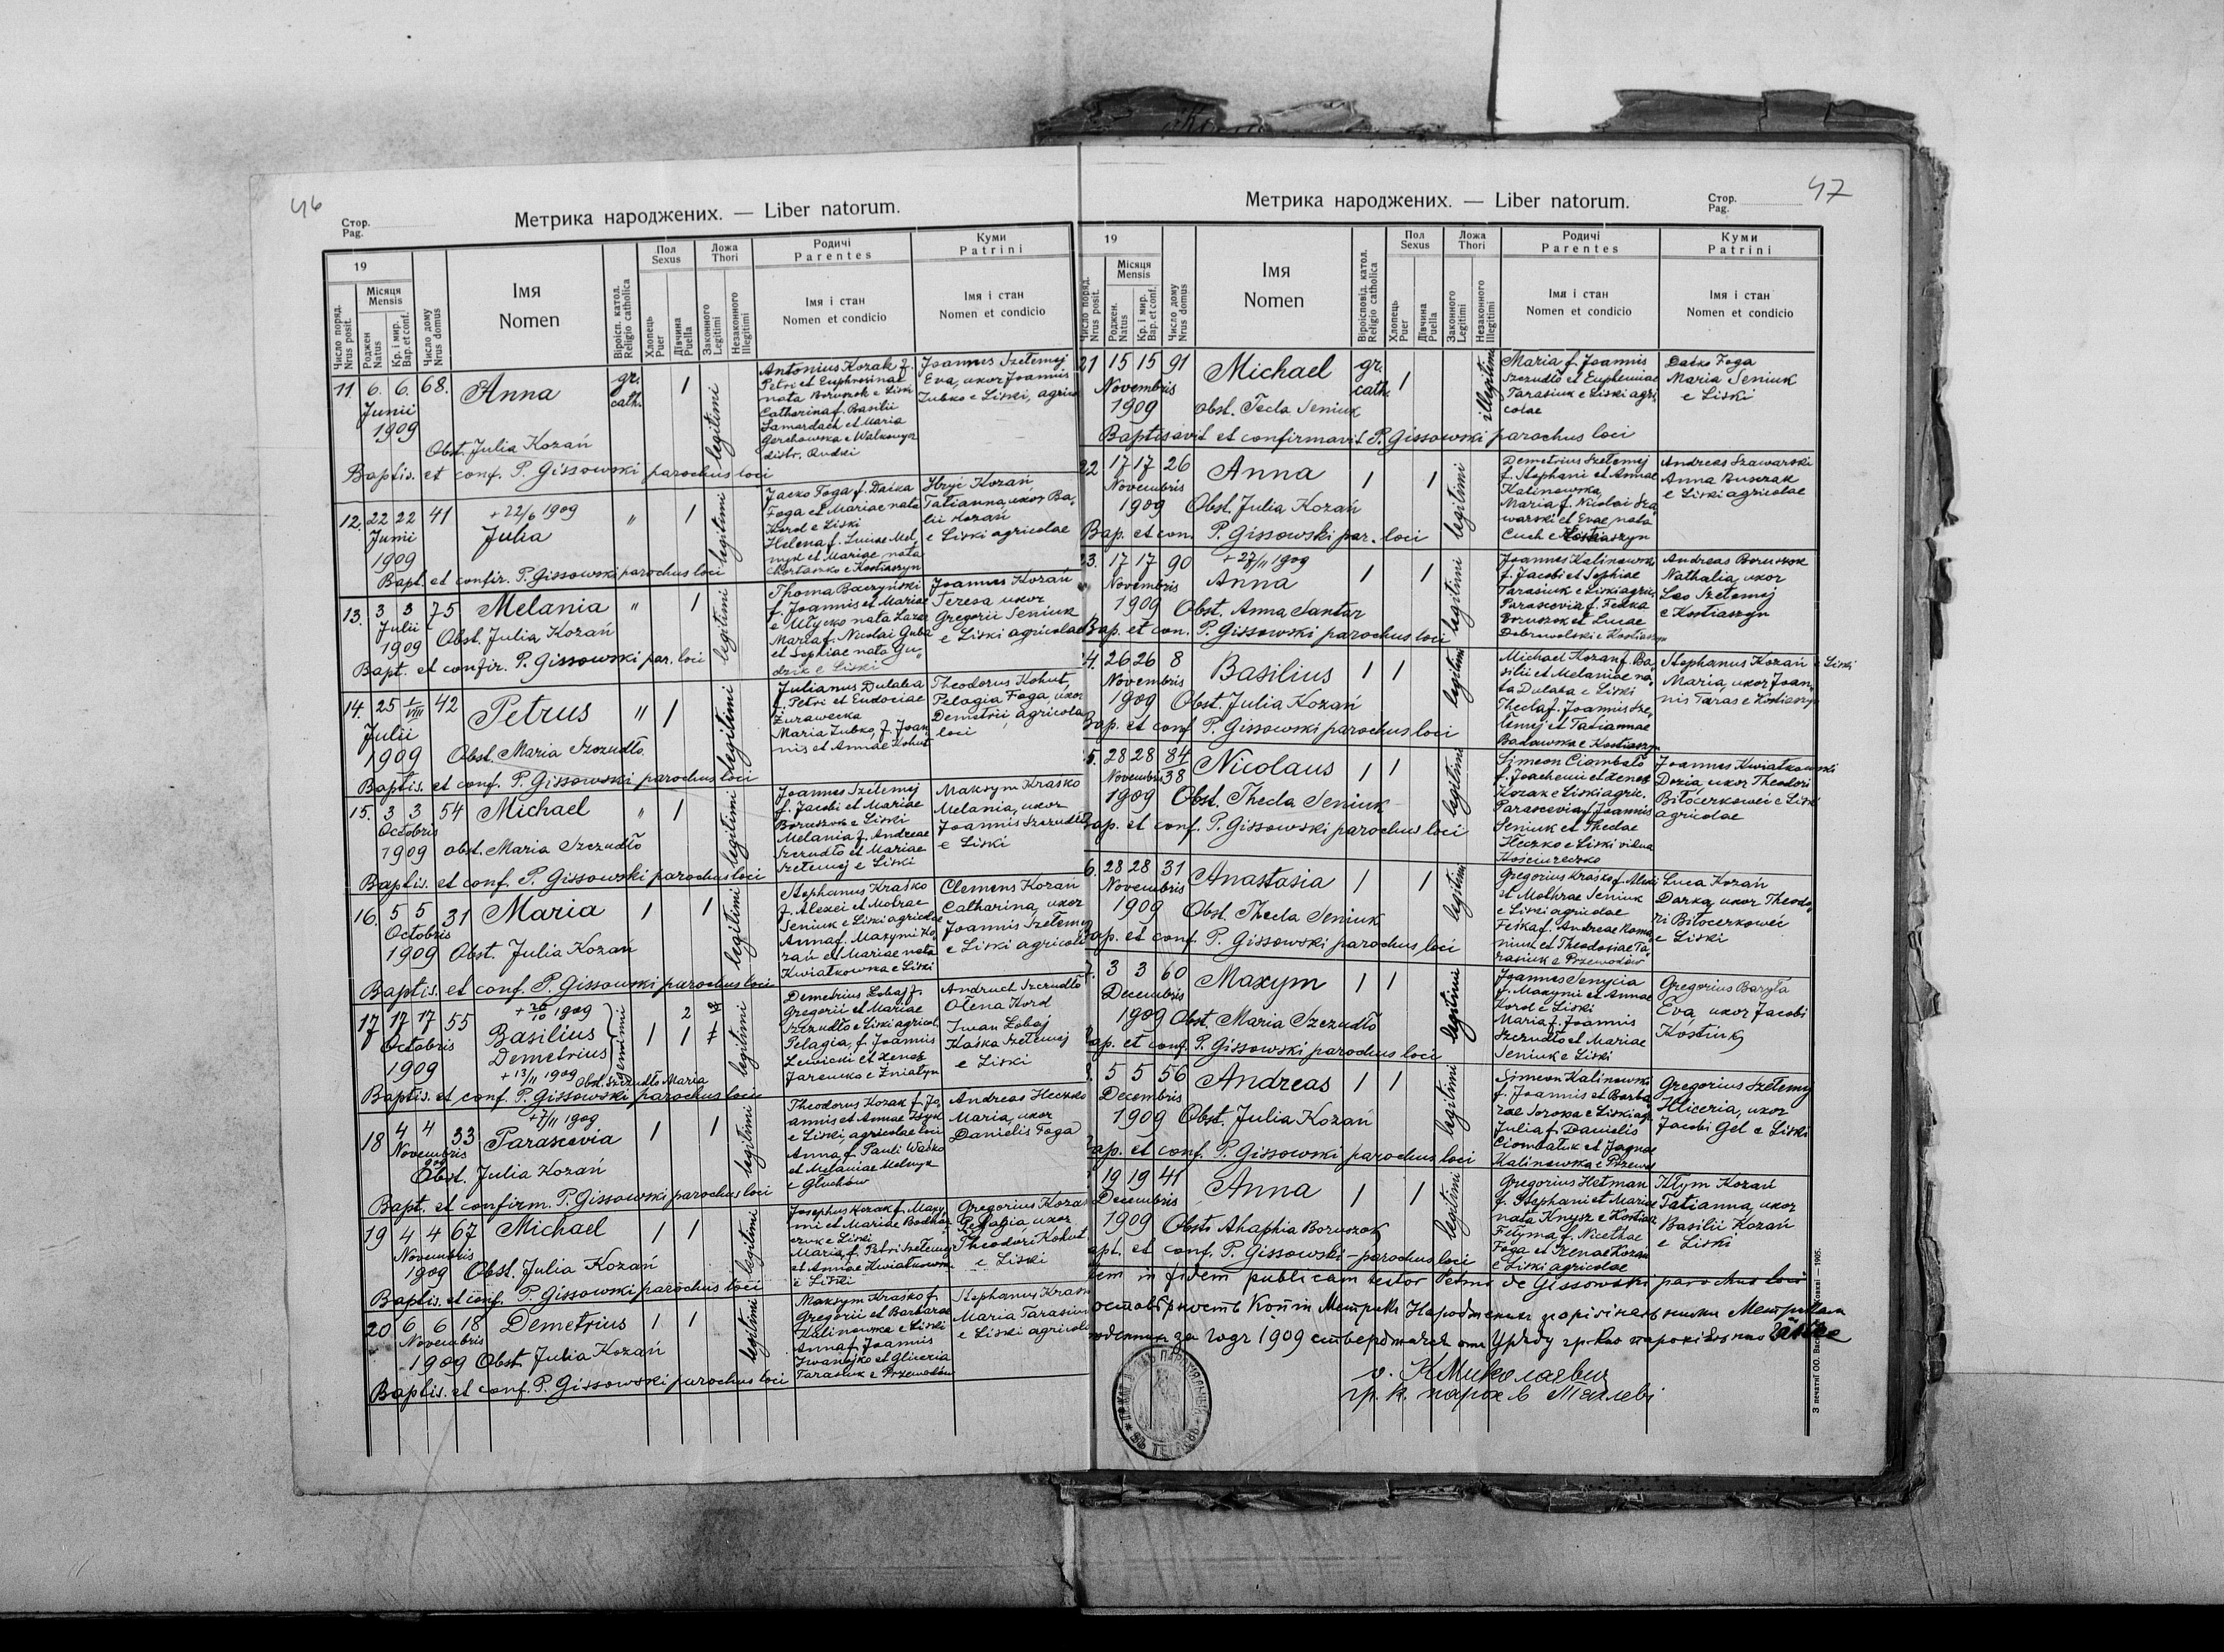 46
Стор.
Pag.
Метрика народжених. — Liber natorum.
19
Число поряд.
Nrus posit.
Місяця
Mensis
Роджен
Natus
Кр. і мир.
Bap. et conf.
Число дому
Nrus domus
Імя
Nomen
Віроісп. катол.
Religio catholica
Пол
Sexus
Хлопець
Puer
Дівчина
Puella
Ложа
Thori
Законного
Legitimi
Незаконного
Illegitimi
Родичі
Parentes
Імя і стан
Nomen et condicio
Куми
Patrini
Імя і стан
Nomen et condicio
11. 6. 6. 68. Anna gr. cath. 1 legitimi
Junii
1909
Obst. Julia Kozań
Antonius Kozak f.
Petri et Euphrosinae
nata Boruszok e Liski
Catharina f. Basilii
Samardach et Maria
Gerchowska e Walkowyn
distr. Rudki
Joannes Szełemej
Eva, uxor Joannis
Zubko e Liski, agric
Baptis. et conf. P. Gissowski parochus loci
12. 22 22 41 + 22/6 1909 " 1 legitimi
Junii Julia
1909
Jacko Foga f. Daćka
Foga et Mariae nata
Korol e Liski
Helena f. Lucae Mel
nyk et Mariae nata
e Kostiaszyn
Hryć Kozań
Tatianna, uxor Ba
lii Kozań
e Liski agricolae
Bapt. et confir. P. Gissowski parochus loci
13. 3 3 75 Melania " 1 legitimi
Julii
1909 Obst. Julia Kozań
Thoma Baczyński
f. Joannis et Mariae
e Ułycko nata Lazar
Maria f. Nicolai Guba
et Sophiae nata Gu
dzik e Liski
Joannes Kozań
Teresa uxor
Gregorii Seniuk
e Liski agricolae
Bapt. et confir. P. Gissowski par. loci
14. 25 1/VIII 42 Petrus " 1 legitimi
Julii
1909 Obst. Maria Szczudło
Julianus Dulaba
f. Petri et Eudociae
Żurawecka
Maria Zubko, f. Joan
nis et Annae Kohut
Theodorus Kohut
Pelagia Foga, uxor
Demetrii, agricola
loci
Baptis. et conf. P. Gissowski parochus loci
15. 3 3 54 Michael " 1 legitimi
Octobris
1909 obst. Maria Szczudło
Joannes Szełemej
f. Jacobi et Mariae
Boruszok e Liski
Melania f. Andreae
Szczudło et Mariae
Szełemej e Liski
Maksym Kraśko
Melania, uxor
Joannis Szczudło
e Liski
Baptis. et conf. P. Gissowski parochus loci
16. 5 5 31 Maria 1 1 legitimi
Octobris
1909 Obst. Julia Kozań
Stephanus Kraśko
f. Alexei et Motrae
Seniuk e Liski agricolae
Anna f. Maxymi Ko
zań et Mariae nata
Kwiatkowska e Liski
Clemens Kozań
Catharina, uxor
Joannis Szełemej
e Liski agricolae
Baptis. et conf. P. Gissowski parochus loci
17 17 17 55 + 26/10 1909 2
Octobris Basilius 1 1 legitimi
1909 Demetrius gemini
+ 13/11 1909 Obst. Szczudło Maria
Demetrius Łobaj f.
Gregorii et Mariae
Szczudło e Liski agricol.
Pelagia, f. Joannis
Lewicki et Xenae
Jarenko e Żniatyn
Andruch Szczudło
Ołena Korol
Iwan Łobaj
Kaśka Szełemej
e Liski
Baptis. et conf. P. Gissowski parochus loci
18 4 4 33 + 7/11 1909
Novembris Parascevia 1 1 legitimi
909
Obst. Julia Kozań
Theodorus Kozak f. Jo
annis et Annae
e Liski, agricolae loci
Anna f. Pauli Waśko
et Melaniae Melnyk
e Głuchów
Andreas Heczko
Maria, uxor
Danielis Foga
Bapt. et confirm. P. Gissowski parochus loci
19 4 4 67 Michael 1 1 legitimi
Novembris
1909 Obst. Julia Kozań
Josephus Kozak f. Maxy
mi et Mariae
czuk e Liski
Maria, f. Petri Szełemej
et Annae Kwiatkowska
e Liski
Gregorius Kozań
Pelagia uxor
Theodori Kohut
e Liski
Baptis. et conf. P. Gissowski parochus loci
20 6 6 18 Demetrius 1 1 legitimi
Novembris
1909 Obst. Julia Kozań
Maksym Kraśko f.
Gregorii et Barbarae
Kalinowska e Liski
Anna f. Joannis
Iwanejko et Gliceria
Tarasiuk e Przewodów
Stephanus Kraśko
Maria Tarasiuk
e Liski agricolae
Baptis. et conf. P. Gissowski parochus loci
47
Стор.
Pag.
Метрика народжених. — Liber natorum.
19
Число поряд.
Nrus posit.
Місяця
Mensis
Роджен.
Natus
Кр. і мир.
Bap. et conf.
Число дому
Nrus domus
Імя
Nomen
Віроісповід. катол.
Religio catholica
Пол
Sexus
Хлопець
Puer
Дівчина
Puella
Ложа
Thori
Законного
Legitimi
Незаконного
Illegitimi
Родичі
Parentes
Імя і стан
Nomen et condicio
Куми
Patrini
Імя і стан
Nomen et condicio
21 15 15 91 Michael gr. cath. 1 illegitimi
Novembris
1909 obst. Tecla Seniuk
Maria f. Joannis
Szczudło et Euphemiae
Tarasiuk e Liski agri
colae
Daćko Foga
Maria Seniuk
e Liski
Baptisavit et confirmavit P. Gissowski parochus loci
22 17 17 26 Anna 1 1 legitimi
Novembris
1909 Obst. Julia Kozań
Demetrius Szełemej
f. Stephani et Annae
Kalinowska
Maria f. Nicolai Sza
warski et Evae nata
Cuch e Kostiaszyn
Andreas Szawarski
Anna Buszak
e Liski agricolae
Bap. et con. P. Gissowski par. loci
23. 17 17 90 + 27/11 1909
Novembris Anna 1 1 legitimi
1909 Obst. Anna Santar
Joannes Kalinowski
f. Jacobi et Sophiae
Tarasiuk e Liski agric.
Parascevia f. Fedka
Boruszok et Lucae
Dobrowolski e Kostiaszyn
Andreas Boruszok
Nathalia, uxor
Leo Szełemej
e Kostiaszyn
Bap. et con. P. Gissowski parochus loci
4. 26 26 8 Basilius 1 1 legitimi
Novembris
1909 Obst. Julia Kozań
Michael Kozań f. Ba
silii et Melaniae na
ta Dulaba e Liski
Thecla f. Joannis Sze
łemej et Tatiannae
Badowska e Kostiaszyn
Stephanus Kozań e Liski
Maria, uxor Joan
nis Taras e Kostiaszyn
Bap. et conf. P. Gissowski parochus loci
5. 28 28 84/38 Nicolaus 1 1 legitimi
Novembris
1909 Obst. Thecla Seniuk
Simeon Ciombało
f. Joachimi et Xenae
Kozak e Liski agric.
Parascevia f. Joannis
Seniuk et Theclae
Heczko e Liski vidua
Kościureczko
Joannes Kwiatkowski
Dozia, uxor Theodori
Biłocerkowei e Liski
agricolae
Bap. et conf. P. Gissowski parochus loci
6. 28 28 31 Anastasia 1 1 legitimi
Novembris
1909 Obst. Thecla Seniuk
Gregorius Kraśko f. Alexi
et Mothrae Seniuk
e Liski agricolae
Feśka f. Andreae Roma
niuk et Theodosiae Ta
rasiuk e Przewodów
Luca Kozań
Darka, uxor Theodo
ri Biłocerkoweć
e Liski
Bap. et conf. P. Gissowski parochus loci
7. 3 3 60 Maxym 1 1 legitimi
Decembris
1909 Obst. Maria Szczudło
Joannes Senycia
f. Maxymi et Annae
Korol e Liski
Maria f. Joannis
Szczudło et Mariae
Seniuk e Liski
Gregorius Baryła
Eva, uxor Jacobi
Kostiuk
Bap. et conf. P. Gissowski parochus loci
8. 5 5 56 Andreas 1 1 legitimi
Decembris
1909 Obst. Julia Kozań
Simeon Kalinowski
f. Joannis et Barba
rae Soroka e Liski ag.
Julia f. Danielis
Ciombaluk et Jagnae
Kalinowska e Przewod
Gregorius Szełemej
Hliceria, uxor
Jacobi Gel e Liski
Bap. et conf. P. Gissowski parochus loci
19 19 41 Anna 1 1 legitimi
Decembris
1909 Obsts Ahaphia Boruszok
Gregorius Hetman
f. Stephani et Mariae
nata Knysz e Kostiasz
Fetyma f. Nicethae
Foga et Xenae Kozań
e Liski agricolae
Kłym Kozań
Tatianna, uxor
Basilii Kozań
e Liski
apt. et conf. P. Gissowski - parochus loci
em in fidem publicam testor Petrus de Gissowski parochus loci
за годъ 1909
о. К. Миколаєвич
гр. к. парох в Тяглеві
З печатні ОО. Васи Жовкві — 1905.